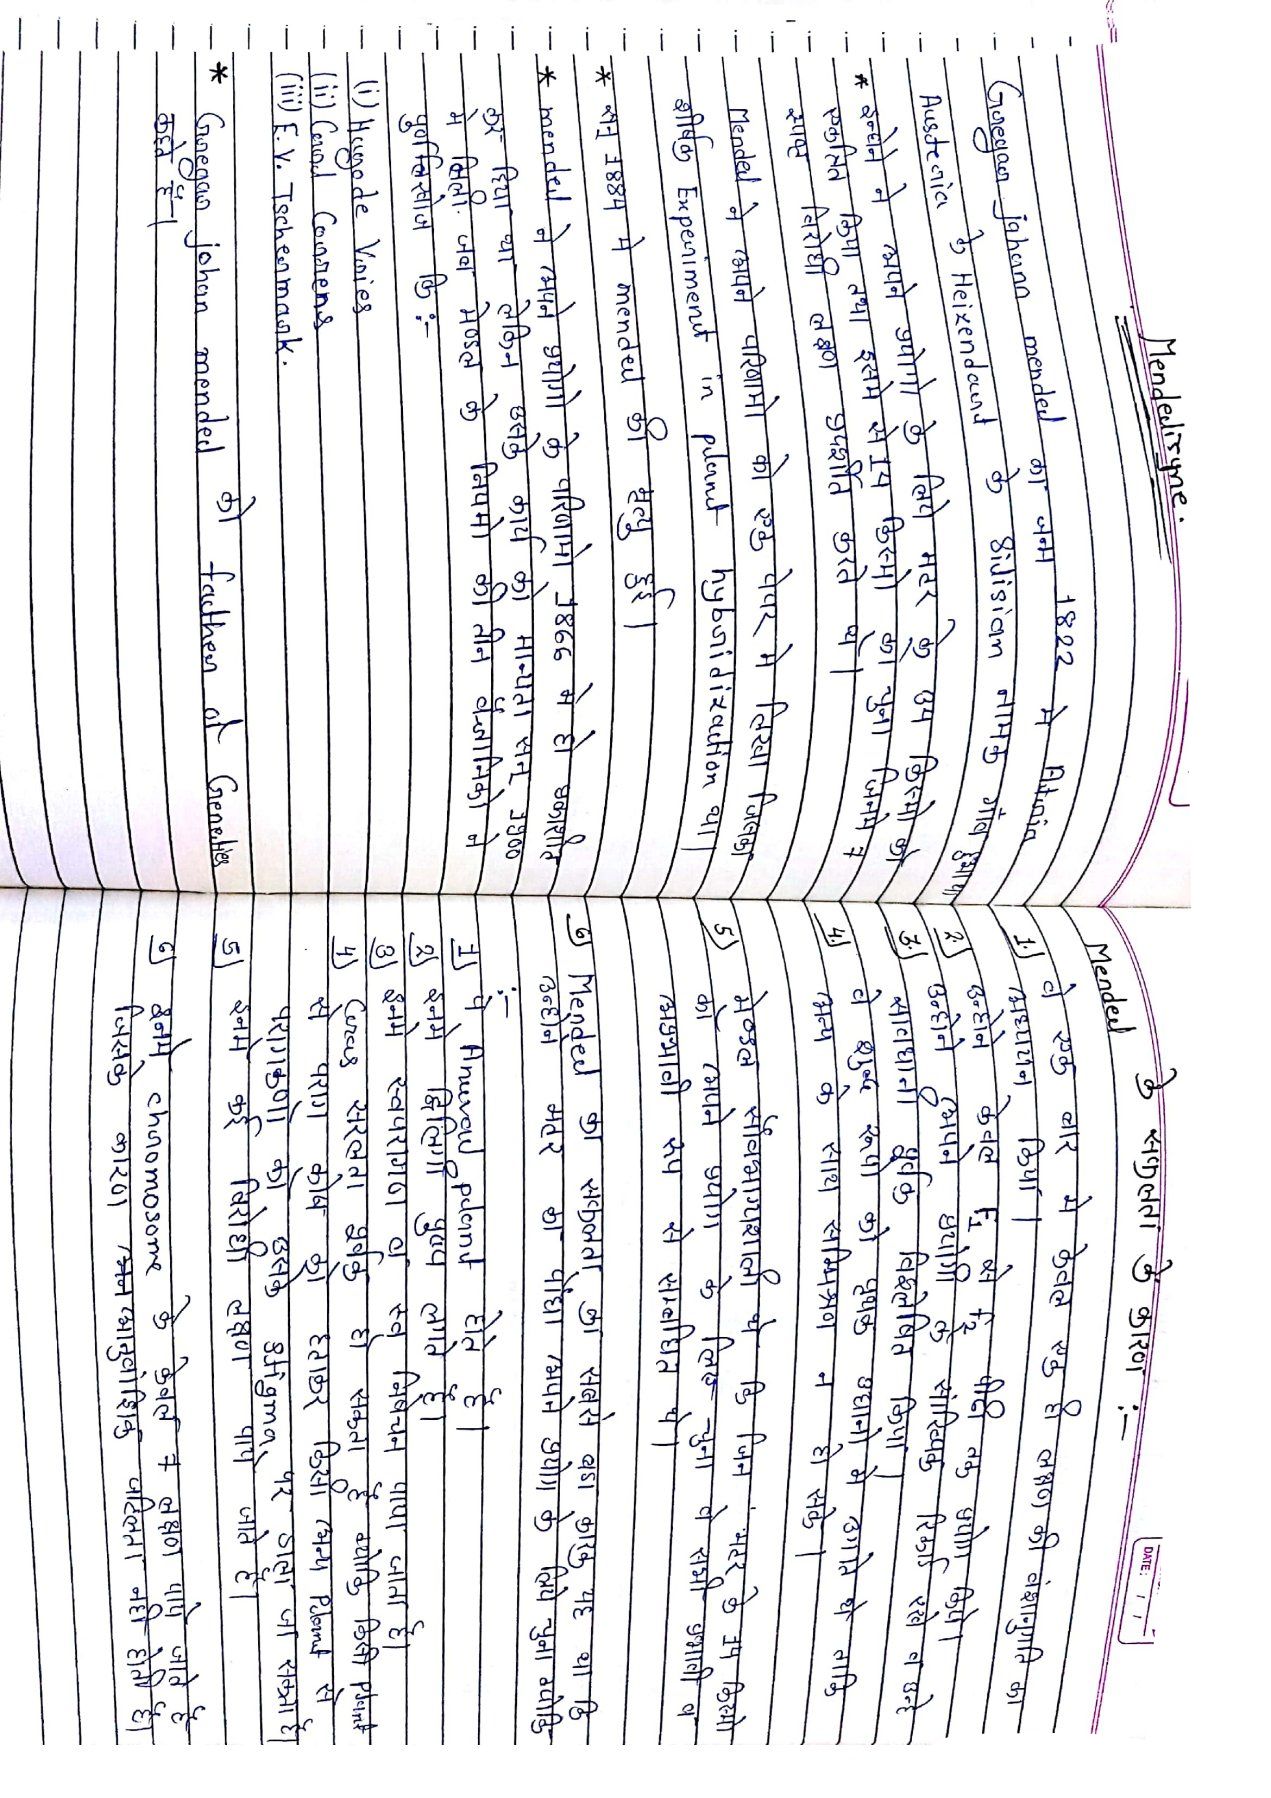 Mendelisme.
Gregor johann mendel का जन्म 1822 मे
Austeria के Heizendarnt के Silisian नामक गाँव हुआ था
* इन्होने ने अपने प्रयोगो के लिये मटर के 34 किस्मो को
एकत्रित किया तथा इसमे से 14 किस्मो का चुना जिनमे 7
स्पष्ट विरोधी लक्षण प्रदर्शित करते थे।
Mendel ने अपने परिणामो को एक पेपर मे लिखा जिसका
शीर्षक Experiment in plant hybridization था।
* सन् 1884 मे mendel की मृत्यु हुई।
* mendel ने अपने प्रयोगो के परिणामो 1866 मे ही प्रकाशित
कर दिया था लेकिन उसके कार्य को मान्यता सन् 1900
मे मिली. जब मेण्डल के नियमो की तीन वैज्ञानिको ने
पुर्नखोज कि :-
(i) Hugode Vries
(ii) Coral Correns
(iii) E. V. Tschermark.
* Gregor johan mendel को father of Genetics
कहते हैं।
Mendel के सफलता के कारण :-
DATE:
1.) वे एक बार मे केवल एक ही लक्षण की वंशानुगति का
अध्ययन किया।
2) उन्होने केवल F1 व F2 पीढी तक प्रयोग किये।
3.) उन्होने अपने प्रयोगो के सांख्यिक रिकार्ड रखे व उन्हे
सावधानी पूर्वक विश्लेषित किया।
4.) वे शुद्ध रूपो को पृथक उद्यानो मे उगाते थे ताकि
अन्य के साथ सम्मिश्रण न हो सके।
5) मेण्डल सौभाग्यशाली थे कि जिन मटर के 14 किस्मो
को अपने प्रयोग के लिए चुना वे सभी प्रभावी व
अप्रभावी रूप से सम्बन्धित थे।
6) Mendel का सफलता का सबसे बडा कारक यह था कि
उन्होने मटर का पौधा अपने प्रयोग के लिये चुना क्योकि
:-
1) ये Annual plant होते है।
2) इनमे द्विलिंगी पुष्प लगते है।
3) इनमे स्वपरागण व स्व निषेचन पाया जाता है।
4) Cross सरलता पूर्वक हो सकता है क्योकि किसी plant
से पराग कोष को हटाकर किसी अन्य Plant से
परागकणो को उसके stigma, पर डाला जा सकता है।
5) इनमे कई विरोधी लक्षण पाये जाते है।
6) इनमे chromosome के केवल 7 लक्षण पाये जाते है
जिसके कारण अन्य आनुवांशिक जटिलता नही होती है।